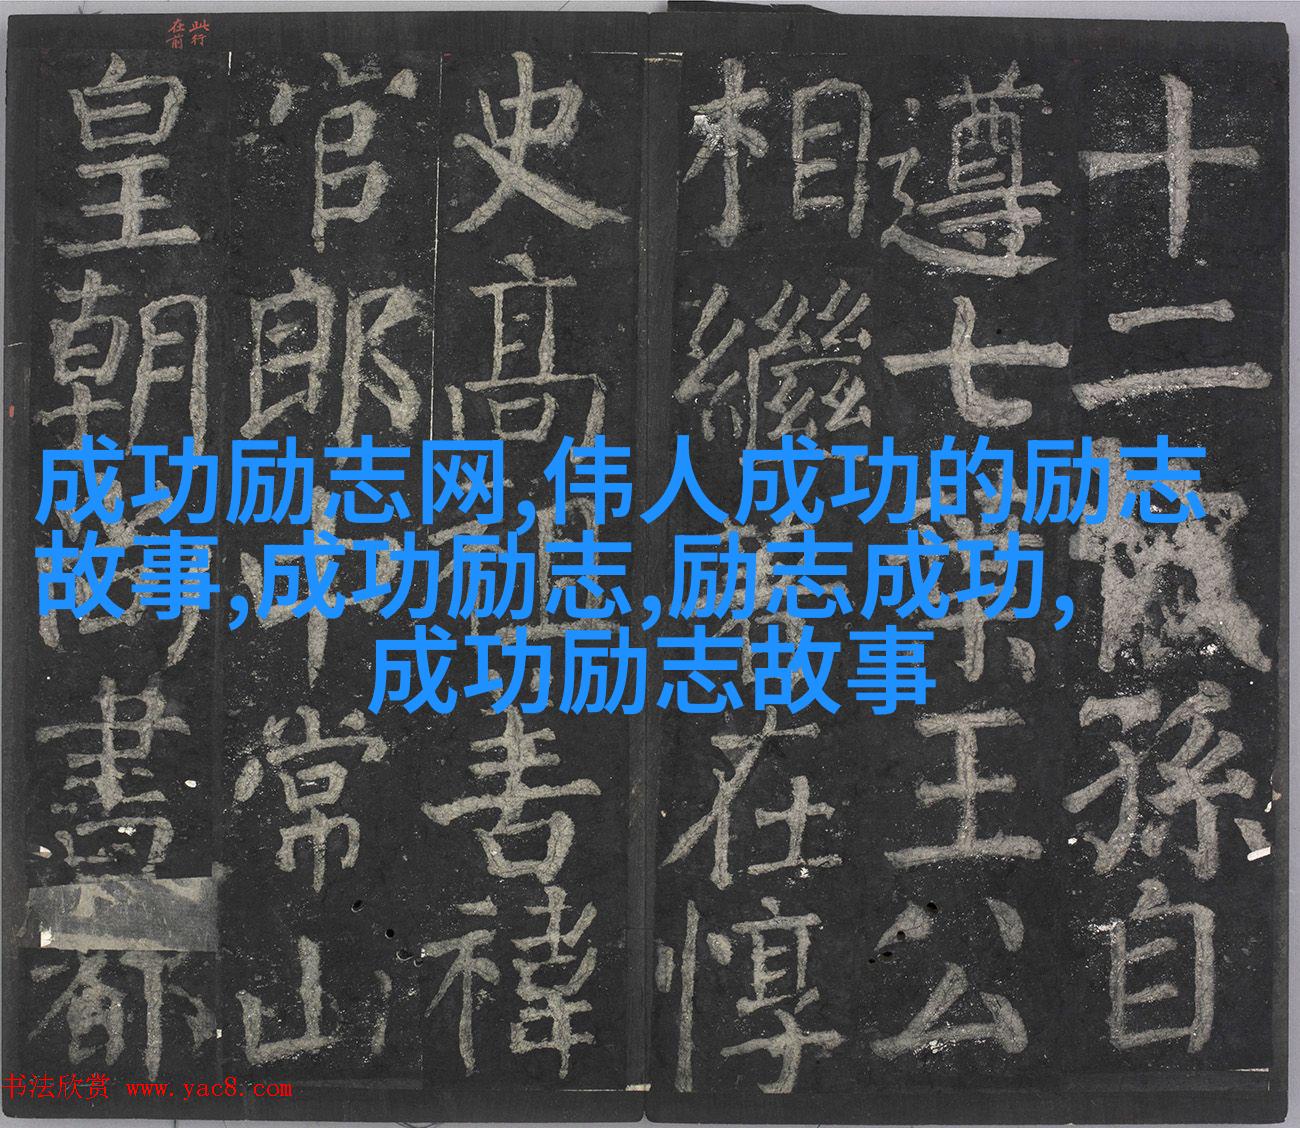 此行
在前
十二孫自
遵七葉王公
相繼在惇
史高祖禕
官郎中常山
皇朝尚書都
成功励志网,伟人成功的励志
故事,成功励志,励志成功,
成功励志故事
书法欣赏 www.yac8.com